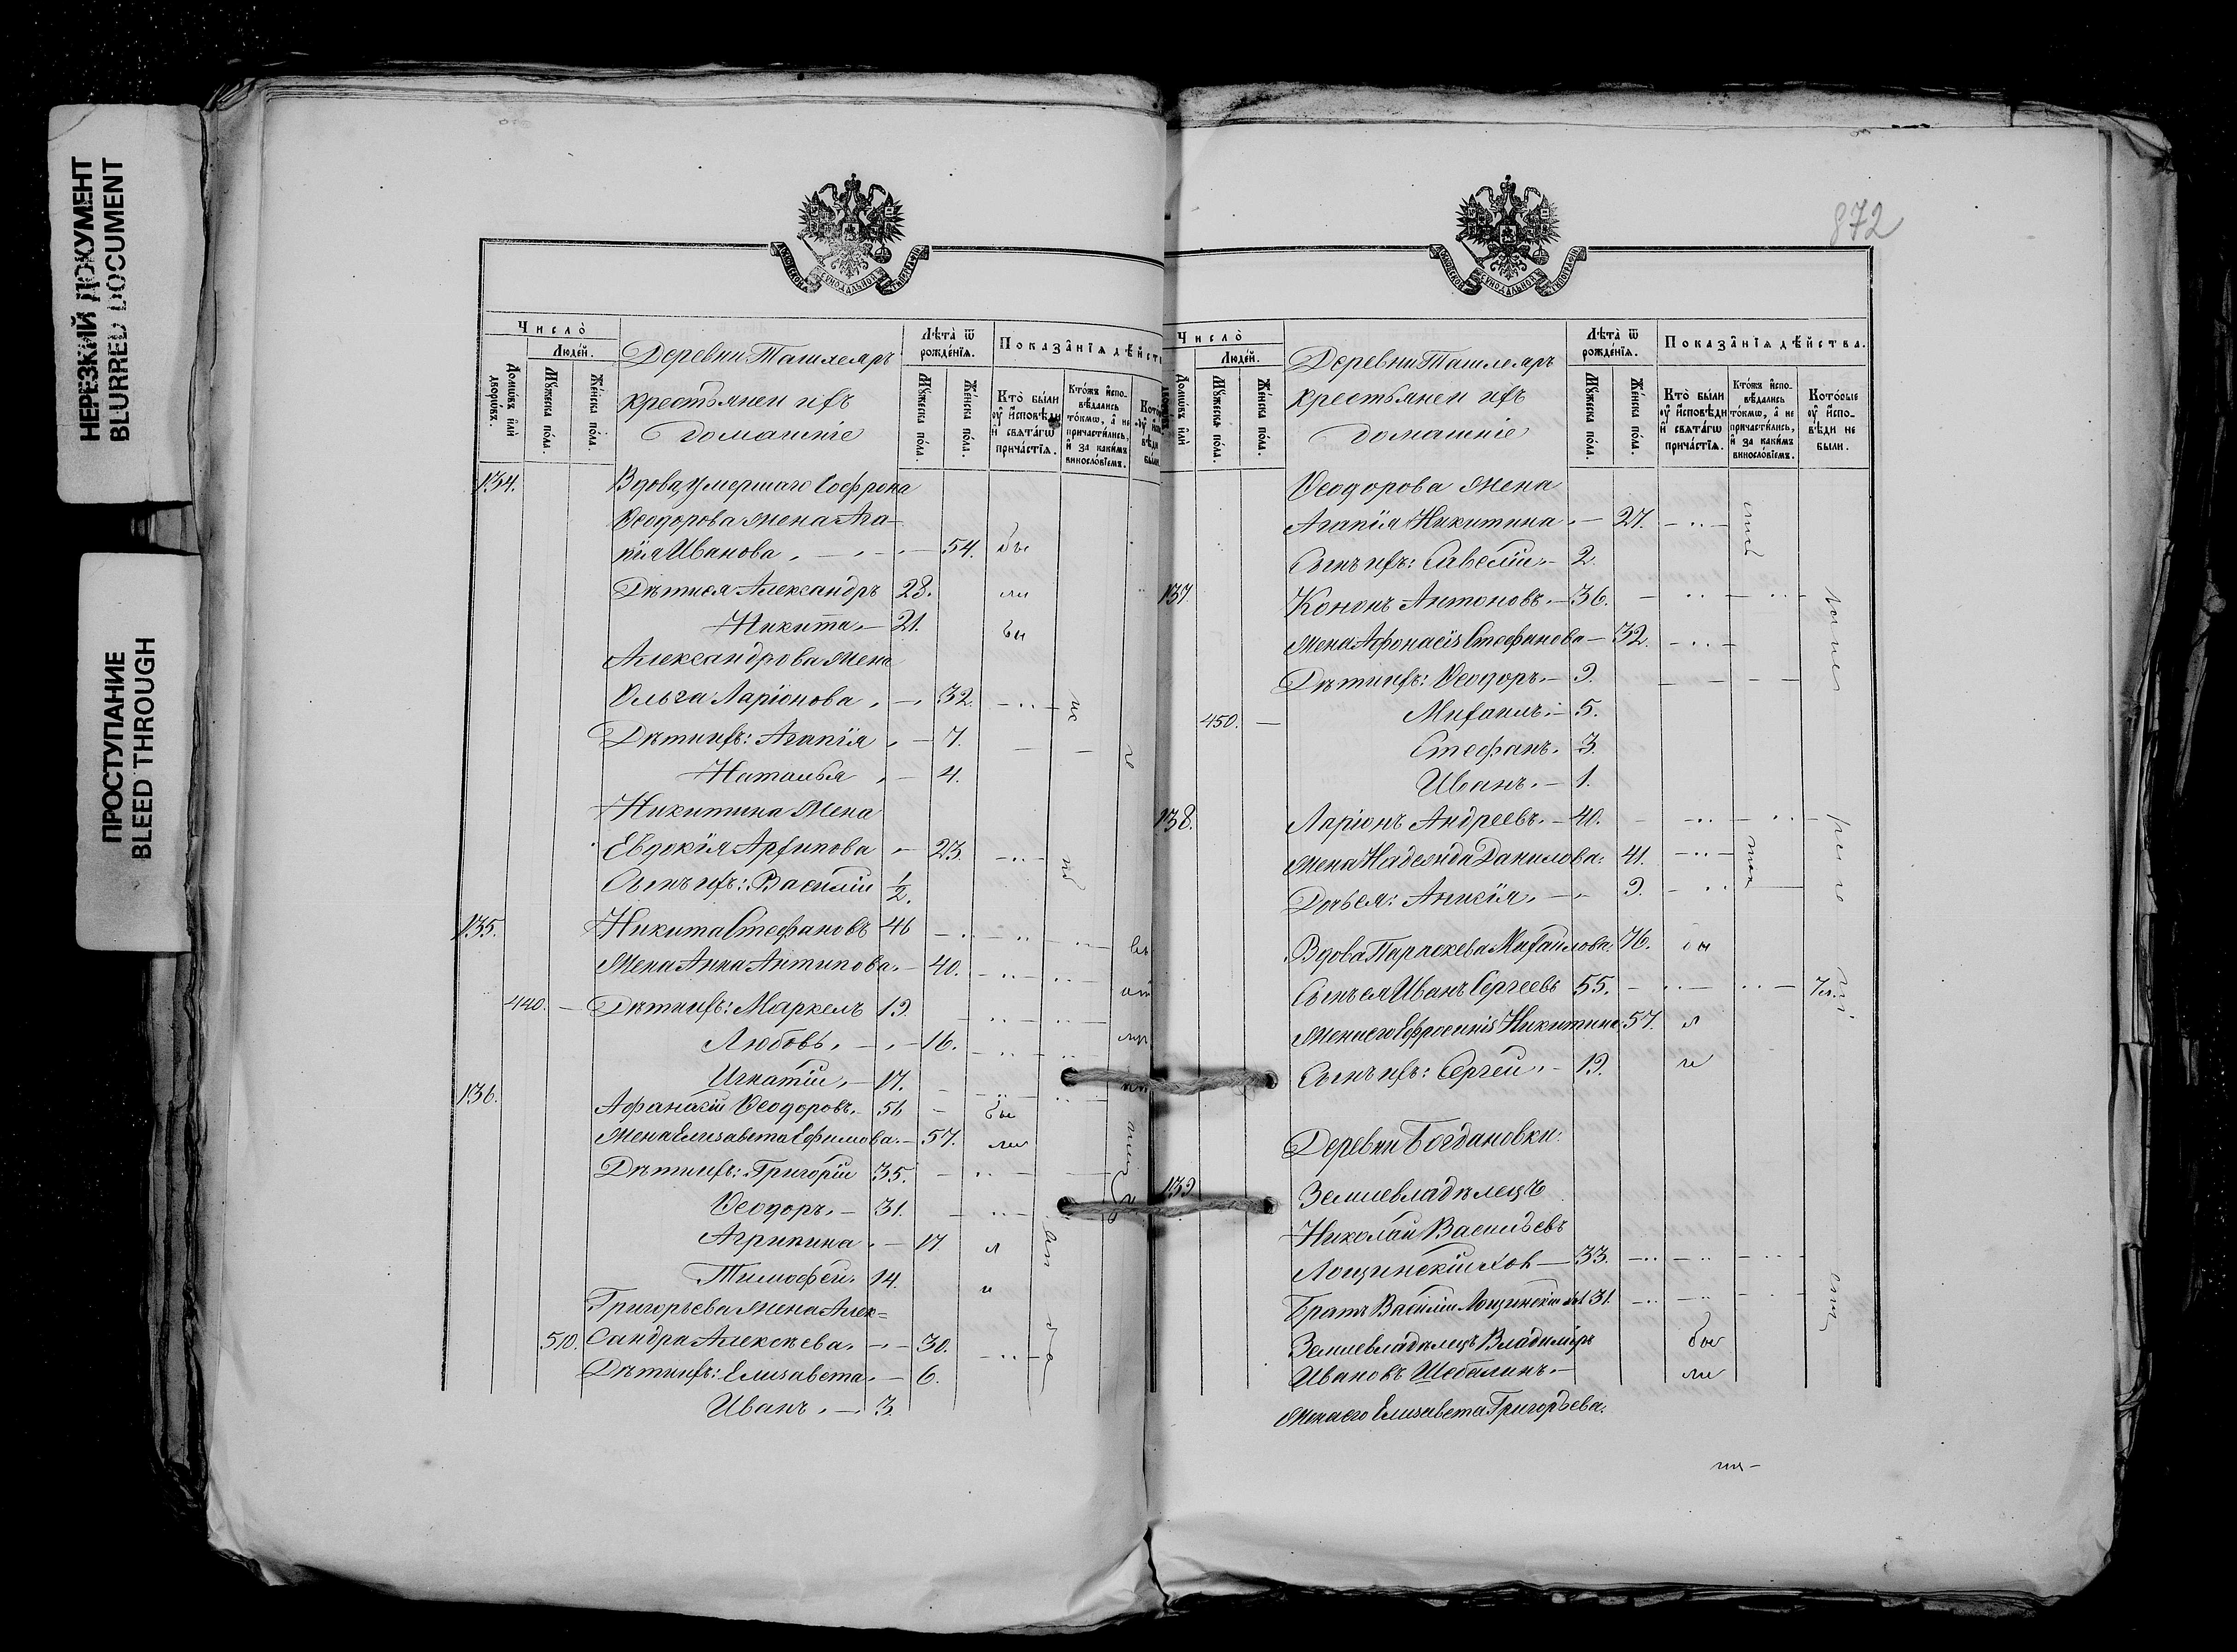 НЕРЕЗКИЙ ДОКУМЕНТ
BLURRED DOCUMENT
ПРОСТУПАНИЕ
BLEED THROUGH
Число̀
Людей.
Домѡвъ или дворѡвъ.
Мꙋжеска пола.
Женска пола.
Деревни Ташлеяръ
крестьянеи ихъ
домашніе
Лѣта̀ ѿ рождéнїѧ.
Мꙋжеска пола.
Женска пола.
Показáнїѧ дѣйст
Кто̀ бы́ли ᲂу҆ и҆сповѣди и҆ свѧтáгѡ причáстїѧ.
Ктóжъ и҆спо-
вѣдались
тóкмѡ, а҆ не
причасти́лись,
и҆ за каки́мъ
винослóвїемъ.
134.
Вдова, умершаго Софрона
Ѳеодорова жена Ага-
пія Иванова 54. бы
Дѣти ея Александръ 28. ли
Никита 21. бы
Александрова жена
Ольга Ларіонова 32.
Дѣти ихъ: Агапія 7.
Наталья 4.
Никитина жена
Евдокія Архипова 23.
Сынъ ихъ: Василій ½.
135. Никита Стефановъ 46
Жена Анна Антипова 40.
440. Дѣти ихъ: Маркелъ 19.
Любовь 16.
Игнатій 17.
136. Афанасій Ѳеодоровъ 51. бы
Жена Елисавета Ефимова 57. ли
Дѣти ихъ: Григорій 35.
Ѳеодоръ 31.
Агрипина 17 л
Тимофей 14. и
Григорьева жена Алек=
510. сандра Алексѣева 30.
Дѣти ихъ: Елисавета 6.
Иванъ 3.
872
Число̀
Людей.
Домѡвъ или дворѡвъ.
Мꙋжеска пола.
Женска пола.
Деревни Ташлеяръ
крестьянеи ихъ
домашніе
Лѣта̀ ѿ рождéнїѧ.
Мꙋжеска пола.
Женска пола.
Показáнїѧ дѣйства.
Кто̀ бы́ли ᲂу҆ и҆сповѣди и҆ свѧтáгѡ причáстїѧ.
Ктóжъ и҆спо-
вѣдались
тóкмѡ, а҆ не
причасти́лись,
и҆ за каки́мъ
винослóвїемъ.
Котóрые ᲂу҆ и҆спо-
вѣди не
были.
Ѳеодорова жена
Агапія Никитина 27.
Сынъ ихъ: Савелій 2.
137 Кононъ Антоновъ 36.
Жена Афонасія Стефанова 32.
Дѣти ихъ: Ѳеодоръ 9.
450. Михаилъ 5.
Стефанъ 3.
Иванъ 1.
138. Ларіонъ Андреевъ 40.
Жена Надежда Данилова 41.
Дочь ея: Анисія 9.
Вдова Параскева Михайлова 76. бы
Сынъ ея Иванъ Сергеевъ 55.
Жена его Ефросинія Никитина 57. л
Сынъ ихъ: Сергей 19. и
Деревни Богдановки.
139 Землевладѣлецъ
Николай Васильевъ
Лощинскій хол 33.
Братъ Василій Лощинскій хол 31.
Землевладѣлецъ Владиміръ бы
Ивановъ Шебалинъ ли
Жена его Елисавета Григорьева.